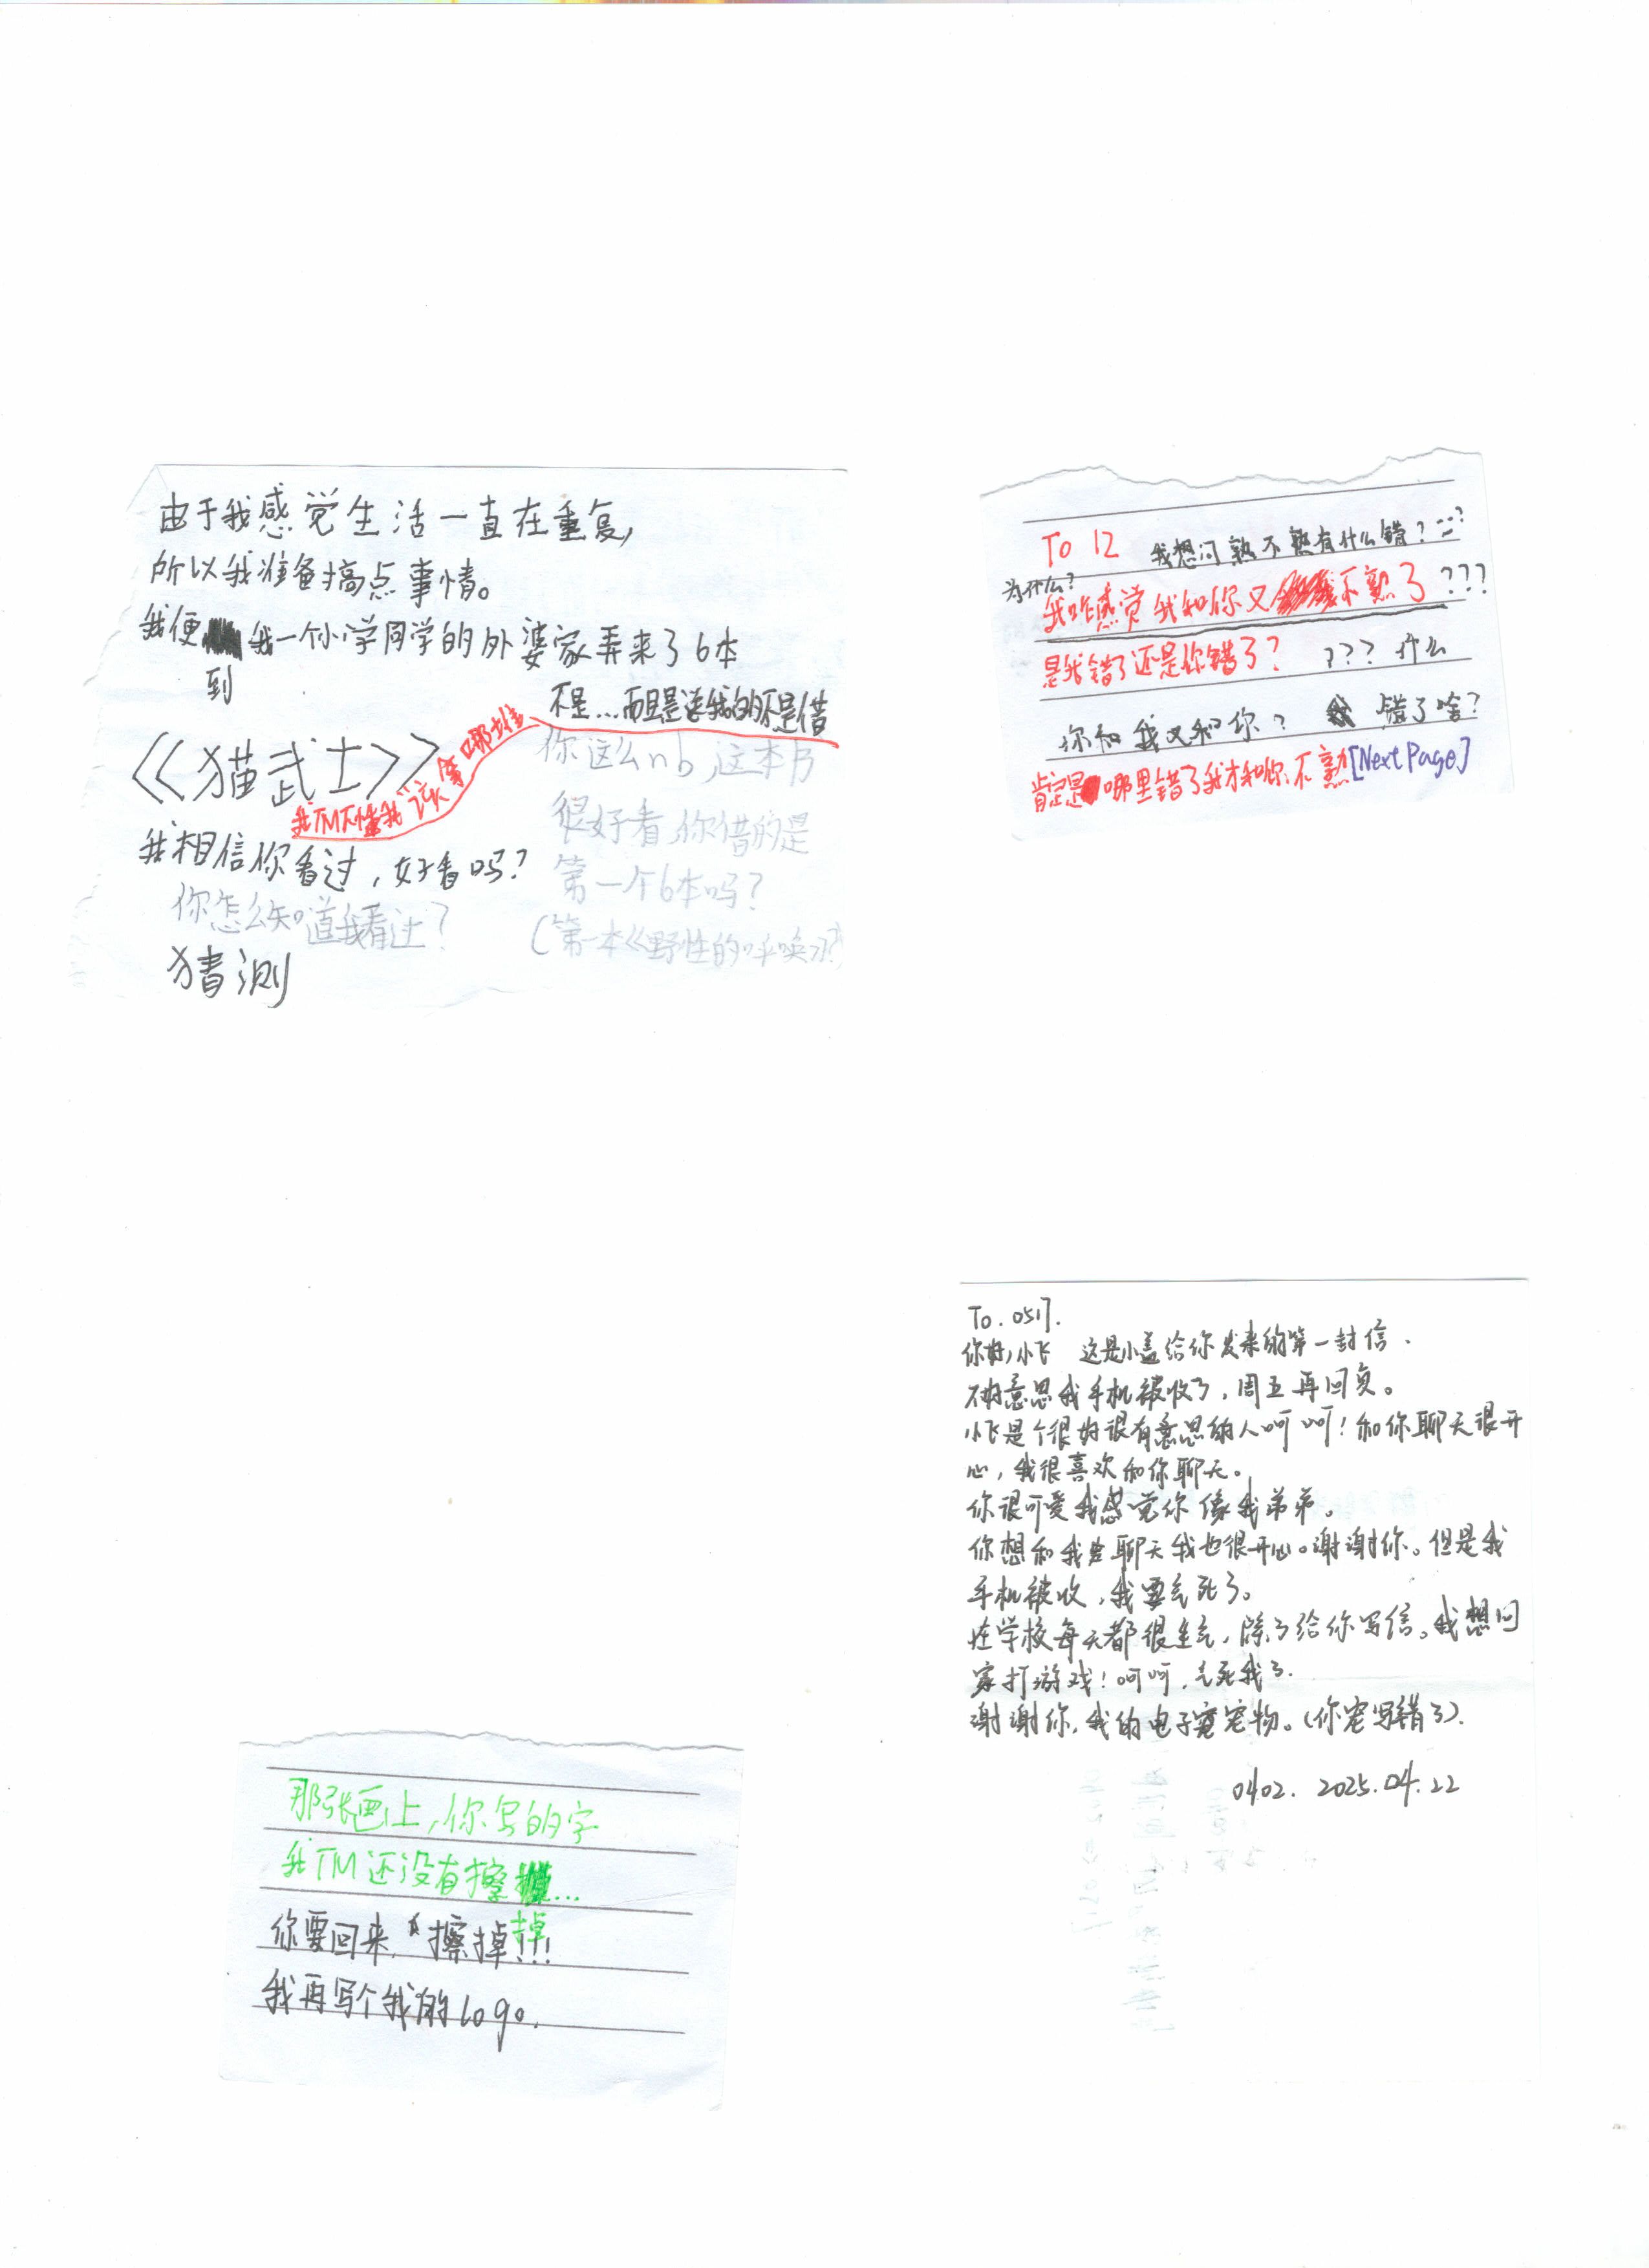 由于我感觉生活一直在重复,
所以我准备搞点事情。
我便到我一个小学同学的外婆家弄来了6本
《猫武士》
不是...而且是送我的不是借
我TM不懂我该拿哪蛙
我相信你看过,好看吗?
你怎么知道我看过?
猜测
你这么nb,这本书
很好看,你借的是
第一个6本吗?
(第一本《野性的呼唤》?)
To 12 我想问熟不熟有什么错?
为什么?
我咋感觉我和你又不熟了???
是我错了还是你错了? ??? 什么
你和我又和你? 错了啥?
肯定是哪里错了我才和你不熟[Next Page]
那张画上,你写的字
我TM还没有擦掉...
你要回来,擦掉!!!
我再写个我的logo.
To. 0517.
你好,小飞 这是小盖给你发来的第一封信.
不好意思我手机被收了,周五再回复。
小飞是个很好很有意思的人呵呵!和你聊天很开
心,我很喜欢和你聊天。
你很可爱我感觉你像我弟弟。
你想和我聊天我也很开心。谢谢你。但是我
手机被收,我要气死了。
在学校每天都很生气,除了给你写信。我想回
家打游戏!呵呵,气死我了.
谢谢你,我的电子宠物。(你宠写错了).
0402. 2025.04.22